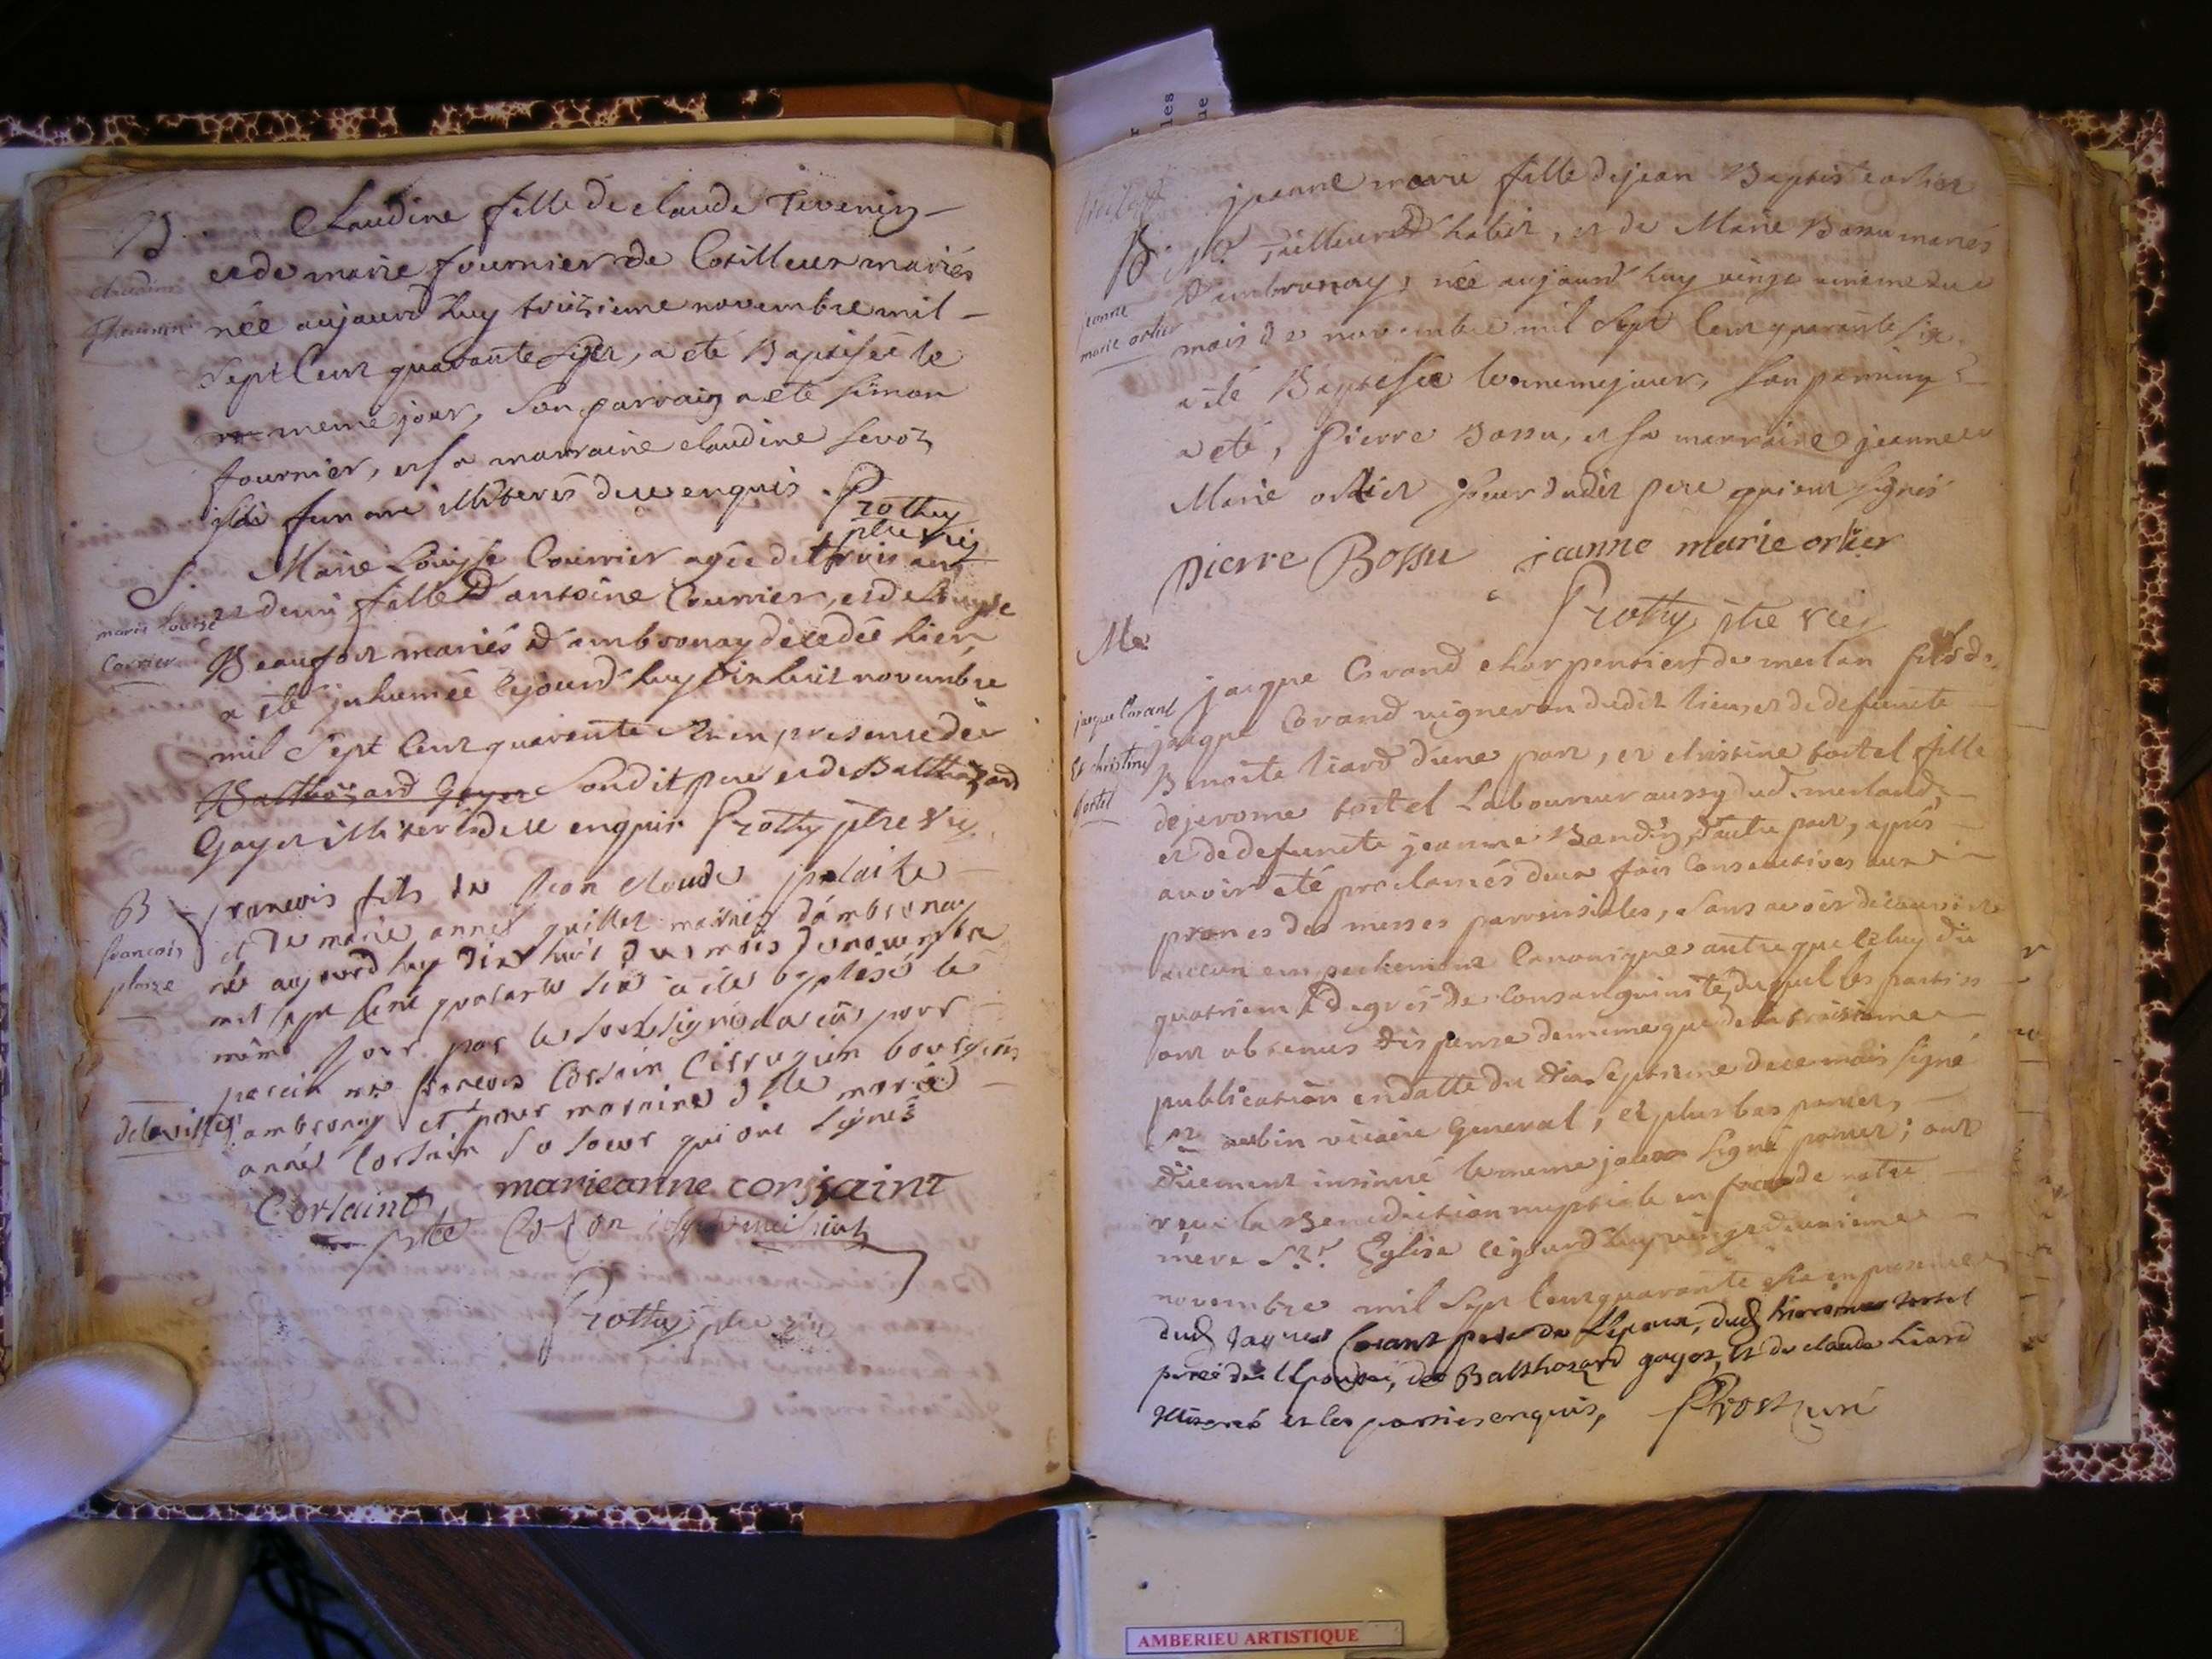 B
Claudine fille de claude Tevenin
et de marie fournier de Cotilleux mariés
née aujourd'huy troizieme novembre mil
Sept Cent quarante Six, a eté Baptisée le
meme jour, Son parrain a eté Simon
fournier, et sa marraine claudine
illiterés de ce enquis. Prothy
ptre vic
S.
marie louise
Corrier
Marie Louyse Courrier agée de trois ans
et demi fille d'antoine Courrier, et de Louyse
Beaufort mariés d'ambronay décédée hier,
a eté inhumée cejourd'huy dix huit novembre
mil Sept Cent quarante Six en presence de
Balthazard Goyet Sondit pere et de Balthazard
Goyet illiterés de ce enquis Prothy ptre vic.
B
francois
plaize
francois fils de Jean Claude
et de marie anne guillet mariés d'ambronay
né aujourd'huy dix huit du mois de novembre
mil sept Cent quarante six a eté baptisé le
même jour par le soubsigné a eu pour
parain mr francois Corsain Cirrugien bourgeois
de la ville d'ambronay et pour maraine dlle marie
anne Corsain sa soeur qui ont Signés
Corsaint marieanne corsaint
Prothy ptre vic
B
jeanne
marie ortier
jeanne marie fille de jean Baptiste ortier
Tailleur d'habit, et de Marie Bossu mariés
d'ambronay, née aujourd'huy vingt unieme du
mois de novembre mil Sept Cent quarante six
a eté Baptisée le meme jour, Son parrain
a eté, Pierre Bossu, et sa marraine jeanne
Marie ortier Soeur dudit pere qui ont signés
pierre Bossu jeanne marie ortier
Prothy ptre vic
M.
jacque Corand
Et christine
tortel
jacque Corand charpentier de merlan fils de
jacque Corand vigneron dudit lieu, et de defuncte
Benoite liard d'une part, et christine tortel fille
de jerome tortel Laboureur aussy dud. merland,
et de defuncte jeanne Bandin, d'autre part, après
avoir eté proclamés deux fois Consecutives aux
prones des messes parroissiales, sans avoir découvert
aucun empechement Canonique autre que celuy du
quatrieme degrés de Consanguinité, duquel les parties
ont obtenus dispense de meme que de la troisieme
publication en datte du dix Septieme de ce mois signé
vicaire General, et plus bas
düement insinué le meme jour Signé ; ont
reçu la Benediction nuptiale en face de notre
mere Ste Eglise cejourd'huy vingt deuxieme
novembre mil Sept Cent quarante Six en presence
dud Jaques Corant pere de L'epoux, dud hierome tortel
pere de l'epouse, de Balthazard goyet, et de claude Liard
illiterés et les parties enquis, Prost curé
AMBERIEU ARTISTIQUE